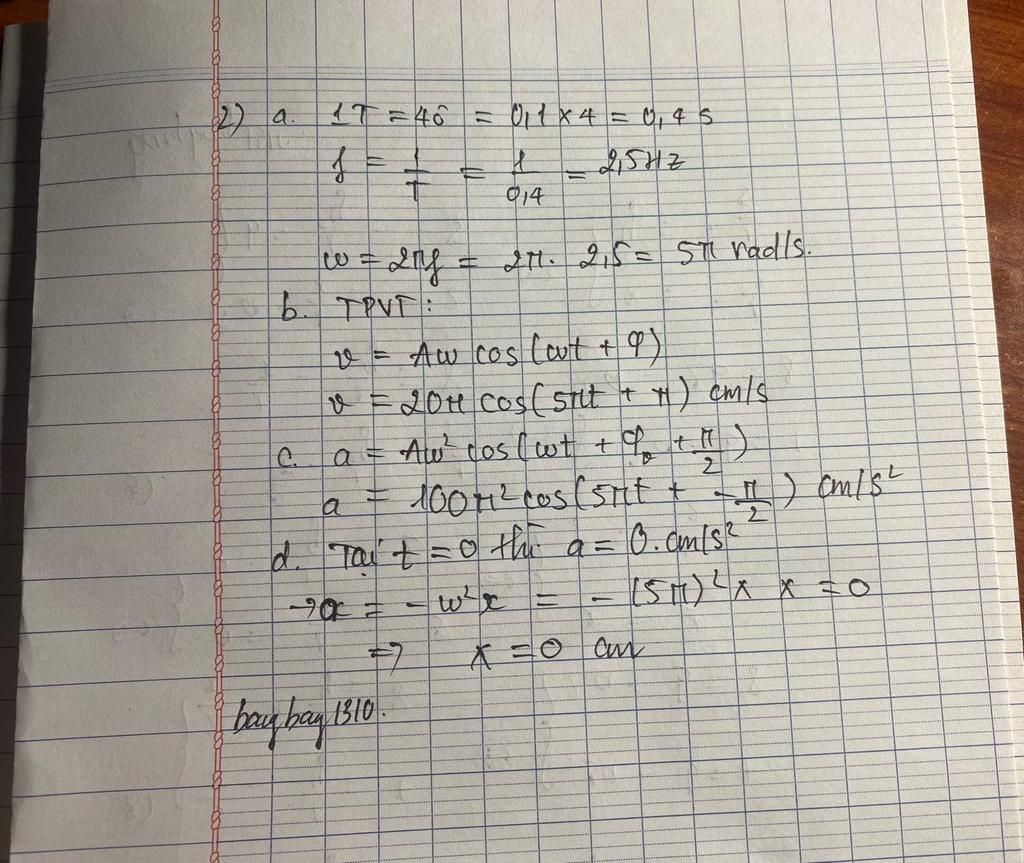 2) a. 1T = 4ô = 0,1 × 4 = 0,4 s
f = 1/T = 1/0,4 = 2,5Hz
ω = 2πf = 2π. 2,5 = 5π rad/s.
b. TPVT:
v = Aω cos(ωt + φ)
v = 20π cos(5πt + π) cm/s
c. a = Aω² cos(ωt + φᵥ + π/2)
a = 100π² cos(5πt + -π/2) cm/s²
d. Tại t = 0 thì a = 0. cm/s²
→ a = - ω²x = - (5π)² × x = 0
⇒ x = 0 cm
baybay1310.